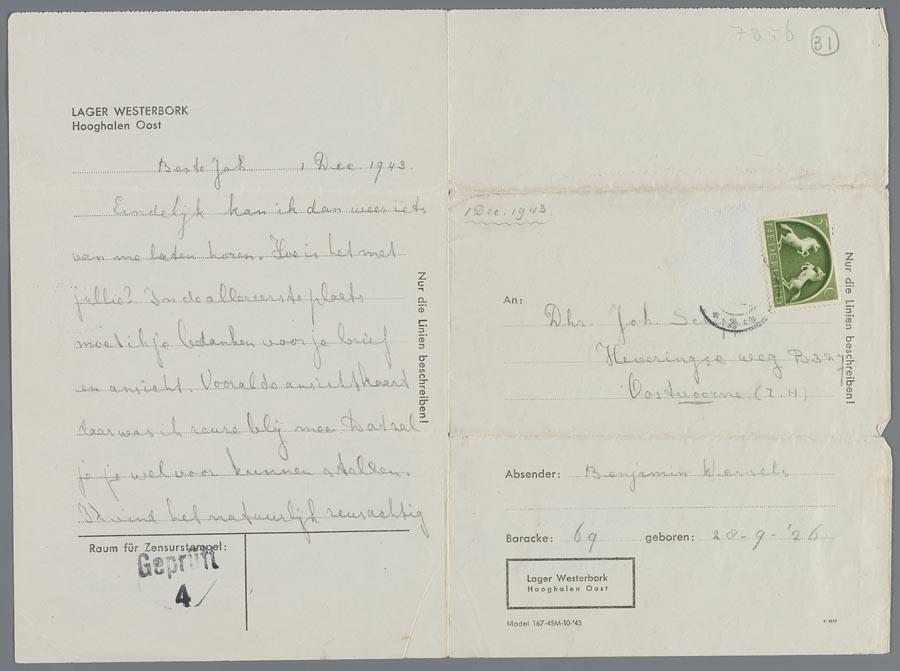 LAGER WESTERBORK
Hooghalen Oost
Beste Joh 1 Dec. 1943.
Eindelijk kan ik dan weer iets
van me laten horen. Hoe is het met
jullie? In de allereerste plaats
moet ik je bedanken voor je brief
en ansicht. Vooral de ansichtkaart
daar was ik reuze blij mee Dat zal
je je wel voor kunnen stellen.
Ik vind het natuurlijk reusachtig
Nur die Linien beschreiben!
Raum für Zensurstempel:
Geprüft
4
785b 31
1 Dec. 1943
NEDERLAND
An:
Dhr. Joh.
Heveringse weg B327
Oostvoorne (Z.H)
Nur die Linien beschreiben!
Absender: Benjamin Wessels
Baracke: 69 geboren: 28-9-'26
Lager Westerbork
Hooghalen Oost
Model 167-45M-10-'43